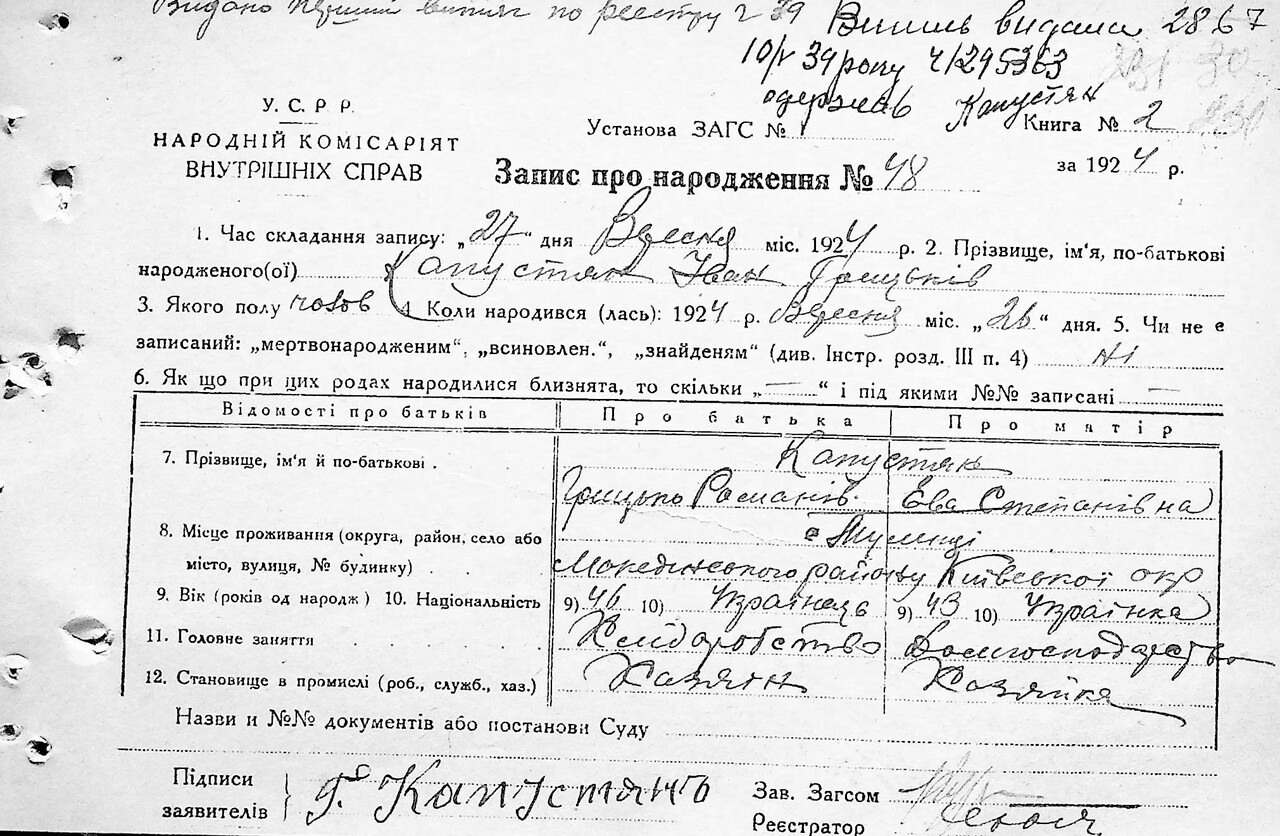 Видано перший витяг по реєстру г 39 Випись видана 2867
10/V 39 року Ч/295363
одержав Капустян
У. С. Р. Р.
НАРОДНІЙ КОМІСАРІЯТ
ВНУТРІШНІХ СПРАВ
Установа ЗАГС № 1 Книга № 2
Запис про народження № 48 за 1924 р.
1. Час складання запису: „27“ дня Вересня міс. 1924 р. 2. Прізвище, ім'я, по-батькові
народженого(ої) Капустян Іван Грицьків
3. Якого полу чолов 4. Коли народився (лась): 1924 р. Вересня міс. „26“ дня. 5. Чи не є
записаний: „мертвонародженим“, „всиновлен.“, „знайденям“ (див. Інстр. розд. III п. 4) Ні
6. Як що при цих родах народилися близнята, то скільки „—“ і під якими №№ записані —
Відомості про батьків Про батька Про матір
7. Прізвище, ім'я й по-батькові . Капустян
Грицько Романів. Єва Степанівна
8. Місце проживання (округа, район, село або
місто, вулиця, № будинку) . . району Київської окр
9. Вік (років од народж) 10. Національність 9) 46 10) Українець 9) 43 10) Українка
11. Головне заняття Хліборобство Домгосподарство
12. Становище в промислі (роб., служб., хаз.) Хазяїн Хазяйка
Назви и №№ документів або постанови Суду
Підписи
заявителів } Г. Капустянъ
Зав. Загсом
Реєстратор